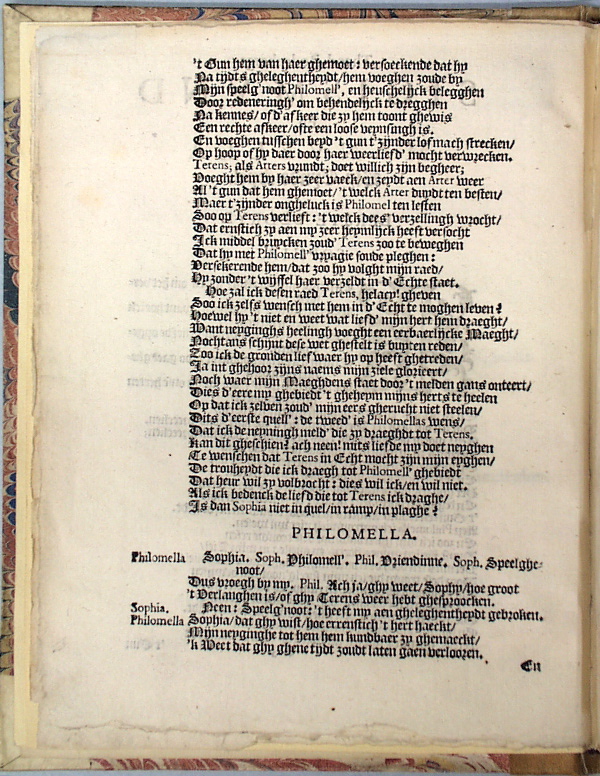 't Gun hem van haer ghemoet: versoeckende dat hy
Na tijdts gheleghentheydt/hem voeghen zoude by
Mijn speelg'noot Philomell', en heuschelijck belegghen
Door redeneringh' om behendelijck te dregghen
Na kennes/of d'afkeer die zy hem toont ghewis
Een rechte afkeer/ofte een loose veynsingh is.
En voeghen tusschen beyd' 't gun t'zijnder lof mach strecken/
Op hoop of hy daer door haer weerliefd' mocht verwrecken.
Terens, als Arters vrundt; doet willich zijn begheer;
Voeght hem by haer zeer vaeck/en zeydt aen Arter weer
Al 't gun dat hem ghemoet/'t welck Arter duydt ten besten/
Maer t'zijnder ongheluck is Philomel ten lesten
Soo op Terens verlieft: 't welck dees' verzellingh wrocht/
Dat ernstich zy aen my zeer heymlijck heeft versocht
Ick middel bruycken zoud' Terens zoo te beweghen
Dat hy met Philomell' vryagie soude pleghen:
Versekerende hem/dat zoo hy volght mijn raed/
Hy zonder 't wijffel haer verzeldt in d'Echte staet.
Hoe zal ick desen raed Terens, helacy! gheven
Soo ick zelfs wensch met hem in d'Echt te moghen leven?
Hoewel hy 't niet en weet wat liefd' mijn hert hem draeght/
Want neyginghs heelingh voeght een eerbaerlijcke Maeght/
Nochtans schijnt dese wet ghestelt is buyten reden/
Zoo ick de gronden lief waer hy op heeft ghetreden/
Ja int ghehoor zijns naems mijn ziele glorieert/
Noch waer mijn Maeghdens staet door 't melden gans onteert/
Dies d'eere my ghebiedt 't gheheym mijns herts te heelen
Op dat ick zelven zoud' mijn eers gherucht niet steelen/
Dits d'eerste quell': de tweed' is Philomellas wens/
Dat ick de neyningh meld' die zy draeghdt tot Terens.
Kan dit gheschien? ach neen! mits liefde my doet neyghen
Te wenschen dat Terens in Echt mocht zijn mijn eyghen/
De trouheydt die ick draegh tot Philomell' ghebiedt
Dat heur wil zy volbrocht: dies wil ick/en wil niet.
Als ick bedenck de liefd die tot Terens ick draghe/
Is dan Sophia niet in quel/in ramp/in plaghe?
PHILOMELLA.
Philomella Sophia. Soph. Philomell'. Phil. Vriendinne. Soph. Speelghe-
noot/
Dus vroegh by my. Phil. Ach ja/ghy weet/Sophy/hoe groot
't Verlanghen is/of ghy Terens weer hebt ghesproocken.
Sophia. Neen: Speelg'noot: 't heeft my aen gheleghentheydt gebroken.
Philomella Sophia/dat ghy wist/hoe errenstich 't hert haeckt/
Mijn neyginghe tot hem hem kundbaer zy ghemaeckt/
'k Weet dat ghy ghene tijdt zoudt laten gaen verlooren.
En